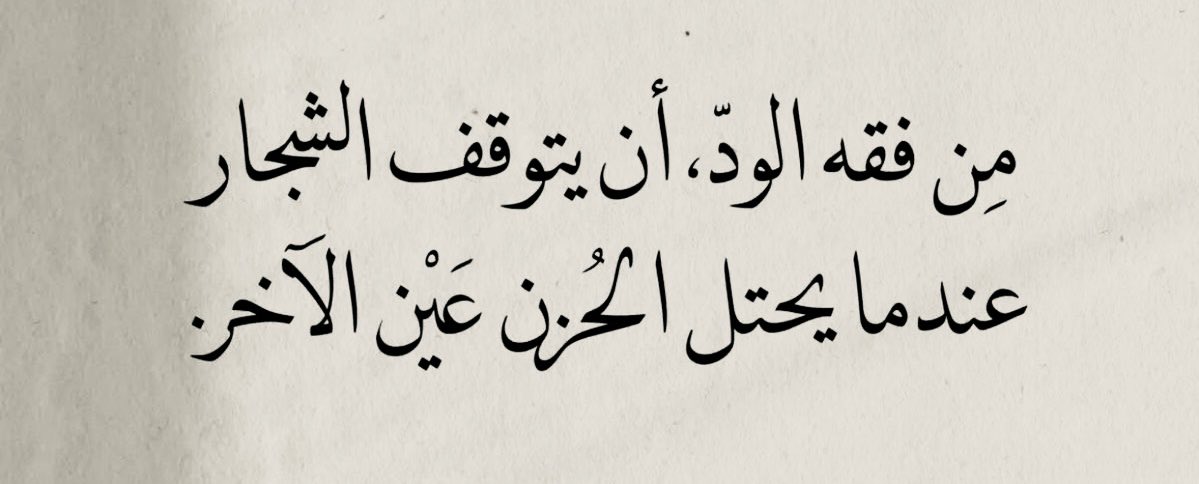 مِن فقه الودّ، أن يتوقف الشجار
عندما يحتل الحُزن عَيْن الآخر.